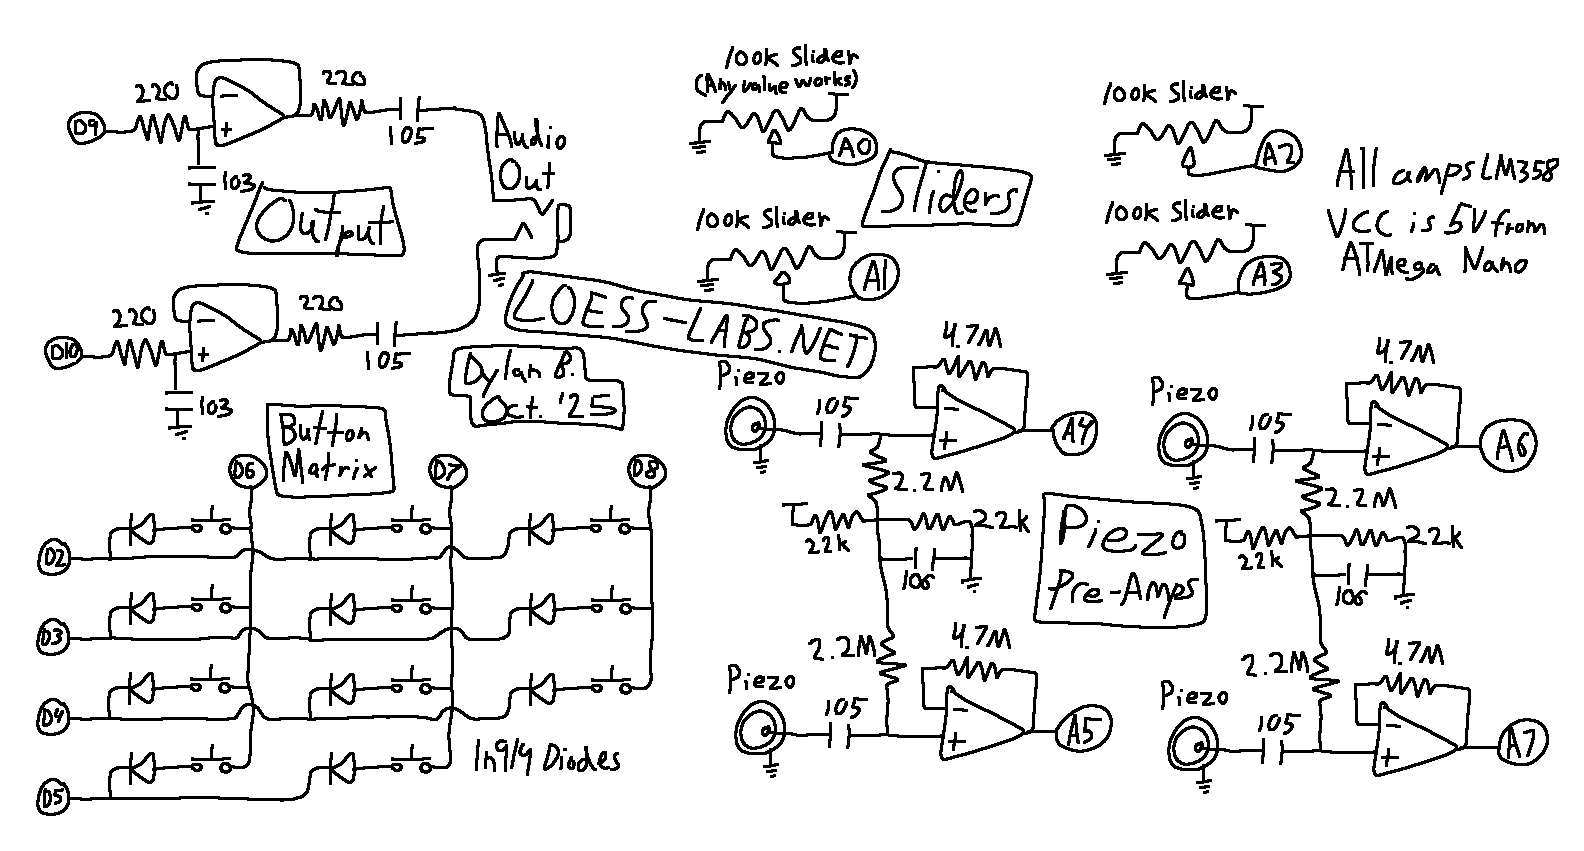 220
220
D9
105
103
Output
Audio
Out
220
220
D10
105
103
100k Slider
(Any value works)
A0
100k Slider
A1
Sliders
100k Slider
A2
100k Slider
A3
All amps LM358
VCC is 5V from
ATMega Nano
LOESS-LABS.NET
Dylan B.
Oct. '25
Button
Matrix
D6
D7
D8
D2
D3
D4
D5
1n914 Diodes
Piezo
105
4.7M
A4
2.2M
22k
22k
106
2.2M
Piezo
105
4.7M
A5
Piezo
Pre-Amps
Piezo
105
4.7M
A6
2.2M
22k
22k
106
2.2M
Piezo
105
4.7M
A7